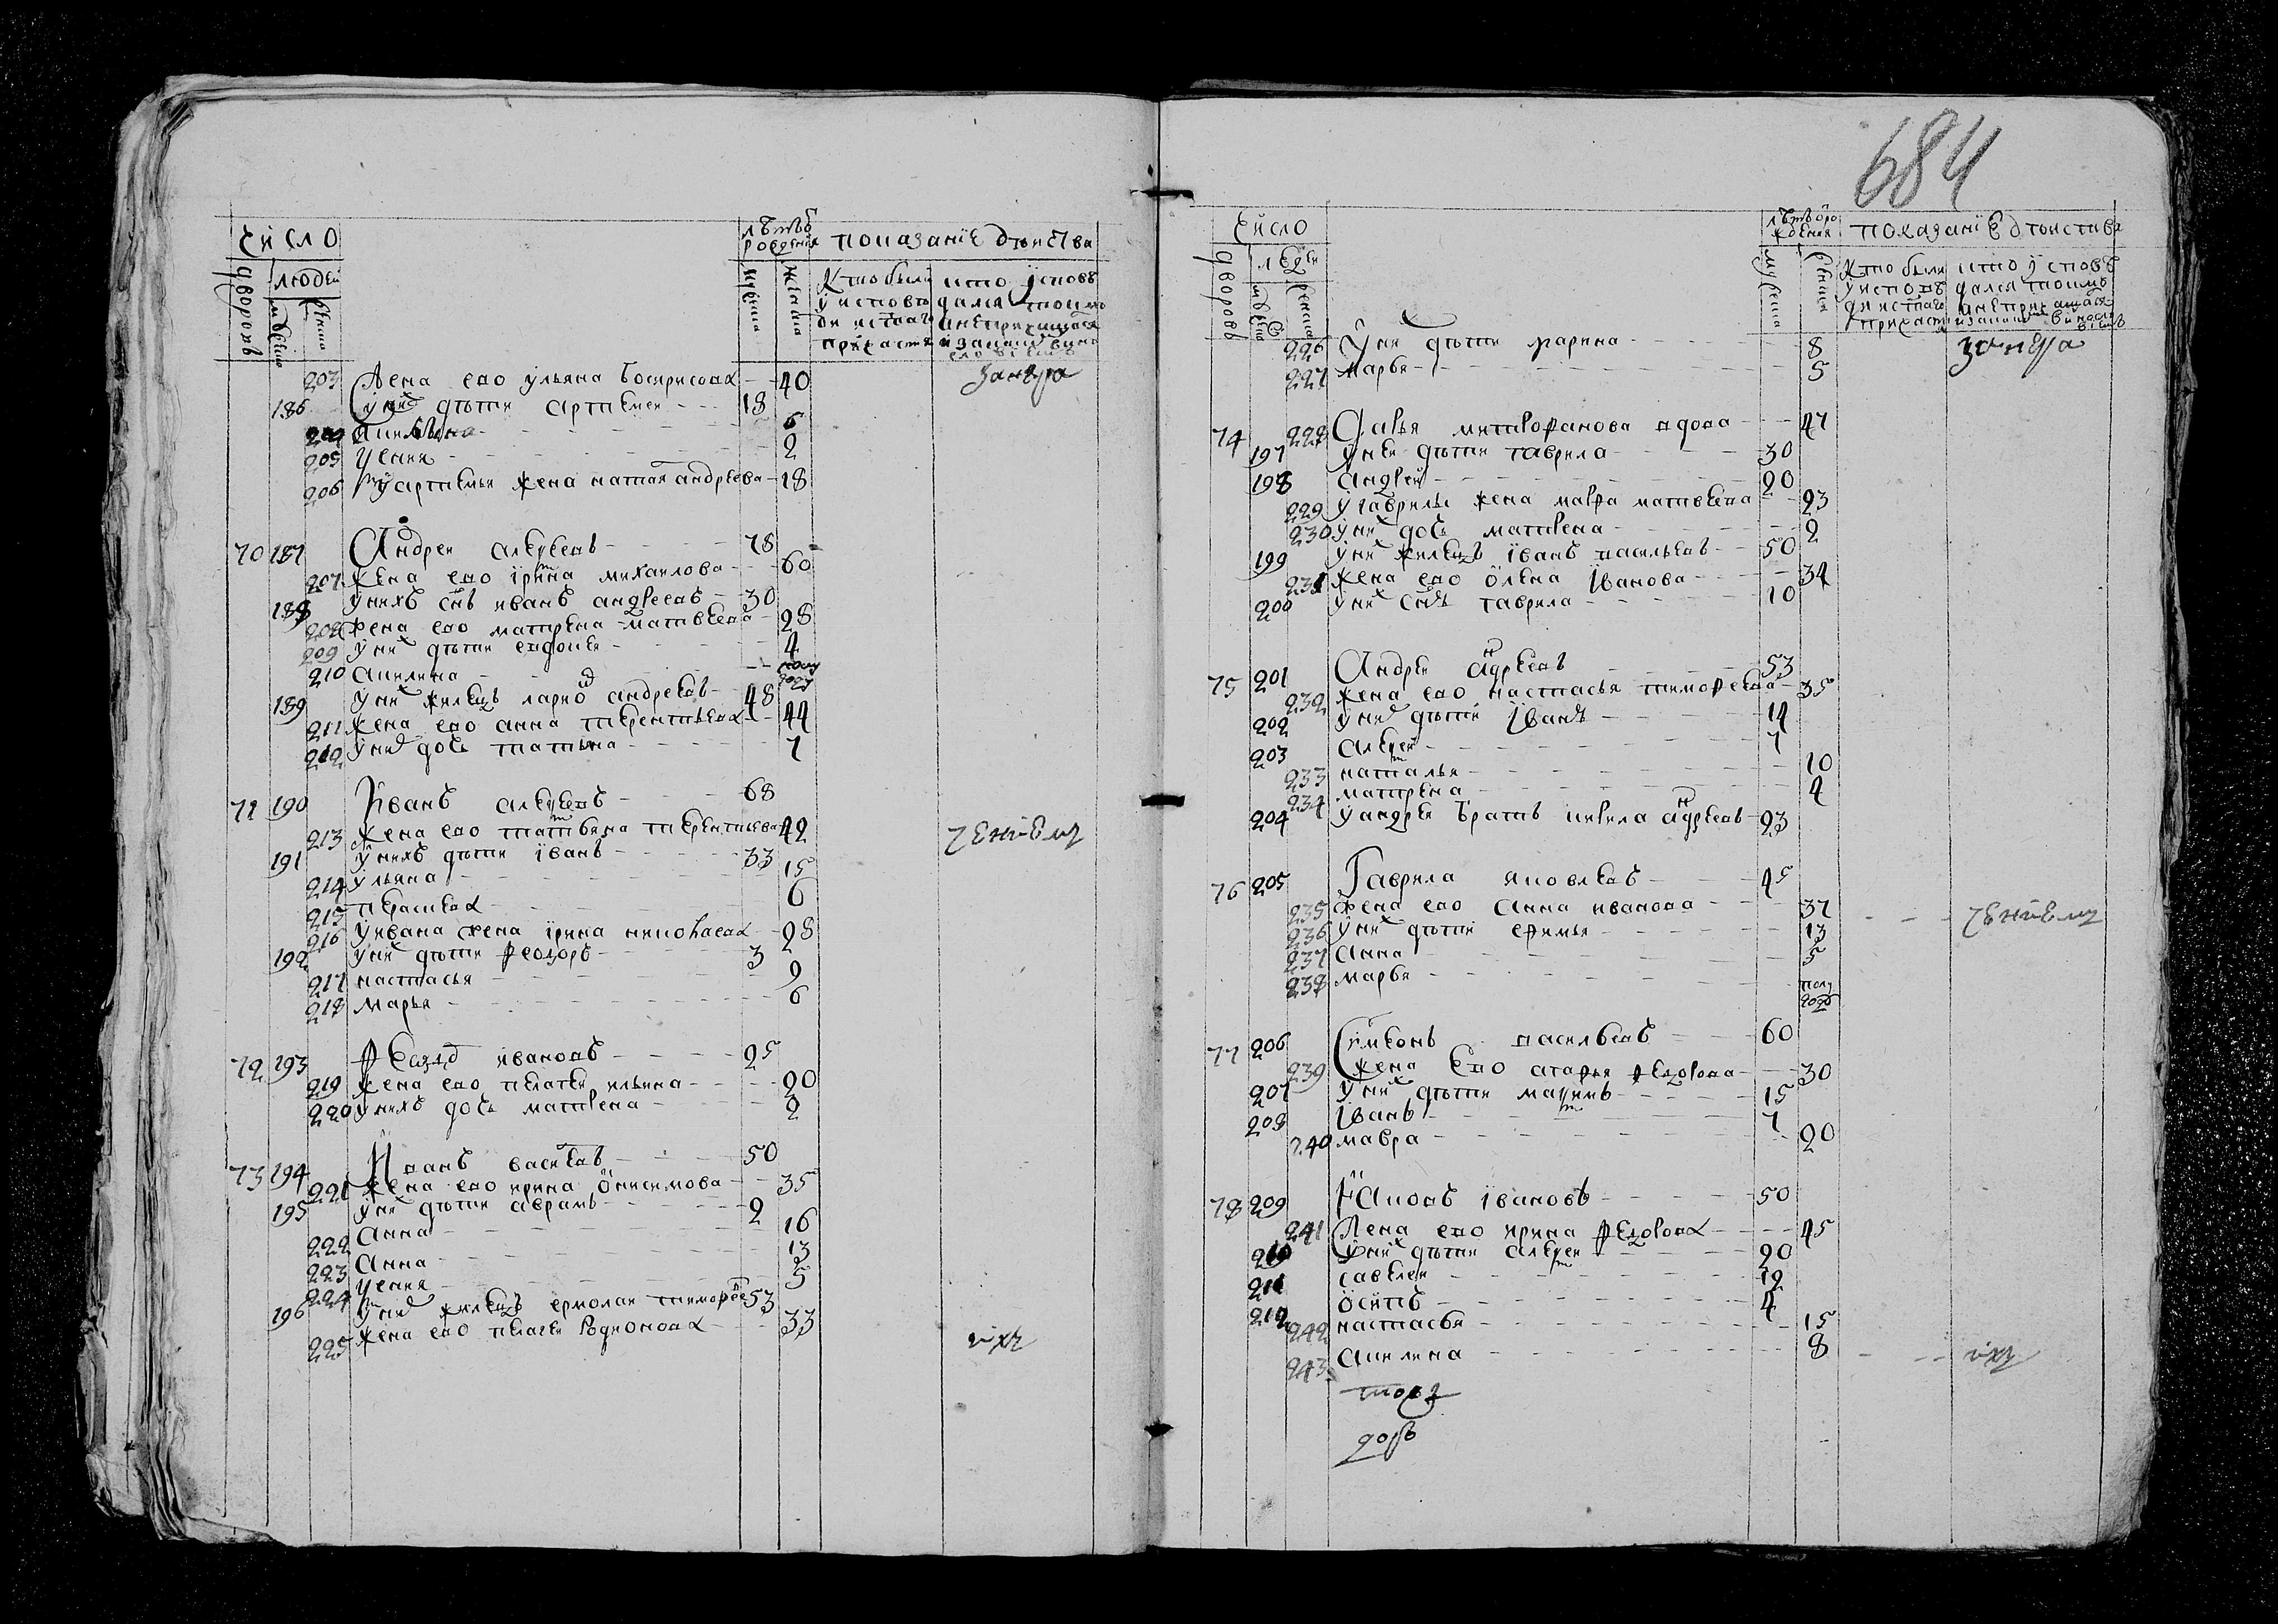 число
дворовъ
людей
мужеска
женска
лѣтъ от рождения
мужеска
женска
показание действа
кто были у исповеди и с[вятаго] причастия
кто исповедался токмо а не причащался и за какимъ виносло­виемъ
203 Жена ево ульяна борисова 40
186 у них дѣти артемеи 18
204 акилина 6
205 Ксения 2
206 У артемья жена наталя андреева 18
70 187 Андреи алексеевъ 78
207 жена ево ирина михаилова 60
188 у нихъ снъ иванъ андреевъ 30
208 жена ево матрена матвеева 28
209 у них дѣти евдокеи 4
210 акилина полугоду
189 у них жилецъ ларио андреевъ 48
211 жена ево анна терентьева 44
212 у них дочь татьяна 7
71 190 Иванъ алексеевъ 68
213 жена ево татьяна терентьева 42
191 у нихъ дѣти iванъ 33
214 ульяна 15
215 прасковя 6
216 у ивана жена iрина никонаева 28
192 у них дѣти феодоръ 3
217 настасья 9
218 марья 6
72 193 Феодоръ ивановъ 25
219 жена ево пелагея ильина 20
220 у нихъ дочь матрена 2
73 194 Иванъ василевъ 50
221 жена ево ирина онисимова 35
195 у них дѣти аврамъ 2
222 Анна 16
223 Анна 13
224 Ксения 5
196 у них жилецъ ермолаи тимофеев 53
225 жена ево пелагеи родионова 33
684
число
дворовъ
людеи
мужеска
женска
лѣтъ от рождения
мужеска
женска
показание действа
кто были у исповеди и с[вятаго] причастия
кто исповедался токмо а не причащался и за какимъ винословиемъ
226 У них дѣти марина 8
227 марья 5
74 228 Дарья митрофанова вдова 47
197 у неи дѣти гаврила 30
198 андреи 20
229 у гаврилы жена мавра матвеева 23
230 у них дочь матрена 2
199 у них жилецъ iванъ васильевъ 50
231 жена ево олена iванова 34
200 у них снъ гаврила 10
75 201 Андреи андреевъ 53
232 жена ево настасья тимофеева 35
202 у них дѣти iванъ 14
203 алексеи 7
233 наталья 10
234 матрена 4
204 у андреи братъ кирила андреевъ 23
76 205 Гаврила яковлевъ 45
235 жена ево анна иванова 37
236 у них дѣти ефимья 13
237 анна 5
238 марья полгода
77 206 Симеонъ васильевъ 60
239 жена ево агафья федорова 30
207 у них дѣти максимъ 15
208 iванъ 7
240 мавра 20
78 209 Iаковъ iвановъ 50
241 Жена ево ирина федорова 45
210 у них дѣти алексеи 20
211 савелеи 12
212 осипъ 4
242 настасья 15
243 акилина 8